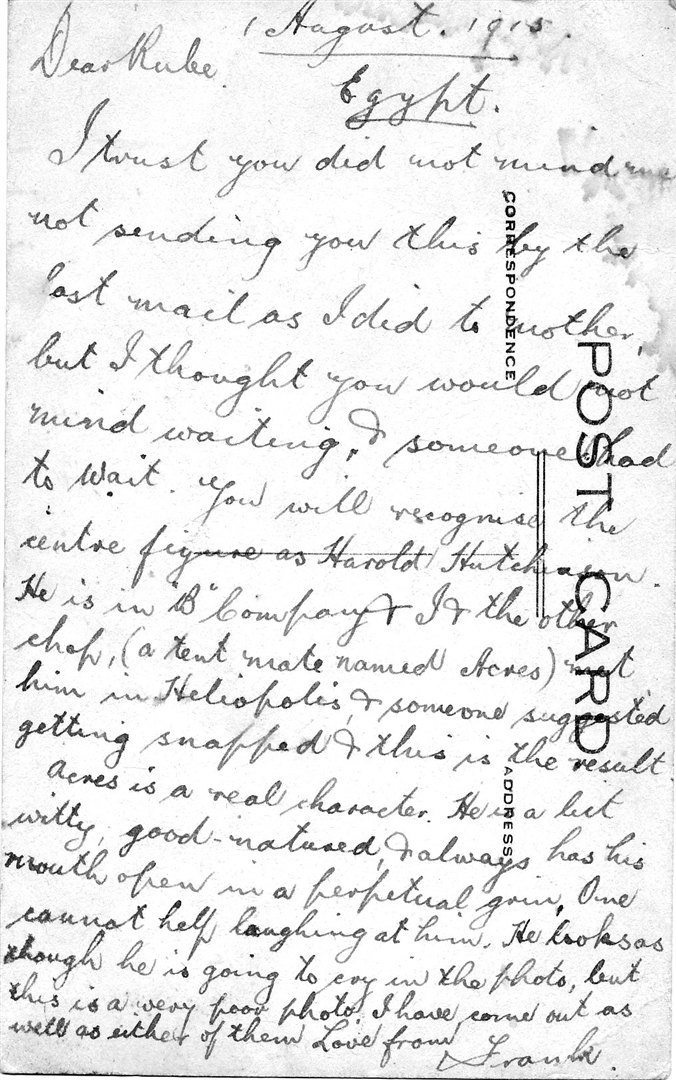 1 August. 1915.
Dear Rube
Egypt.
I trust you did not mind me
not sending you this by the
last mail as I did to mother,
but I thought you would not
mind waiting, & someone had
to wait. You will recognise the
centre figure as Harold Hutchinson.
He is in "B" Company & I & the other
chap, (a tent mate named Acres) met
him in Heliopolis, & someone suggested
getting snapped & this is the result.
Acres is a real character. He is a bit
witty, good-natured, & always has his
mouth open in a perpetual grin. One
cannot help laughing at him. He looks as
though he is going to cry in the photo, but
this is a very poor photo. I have come out as
well as either of them Love from
Frank.
CORRESPONDENCE
POST CARD
ADDRESS